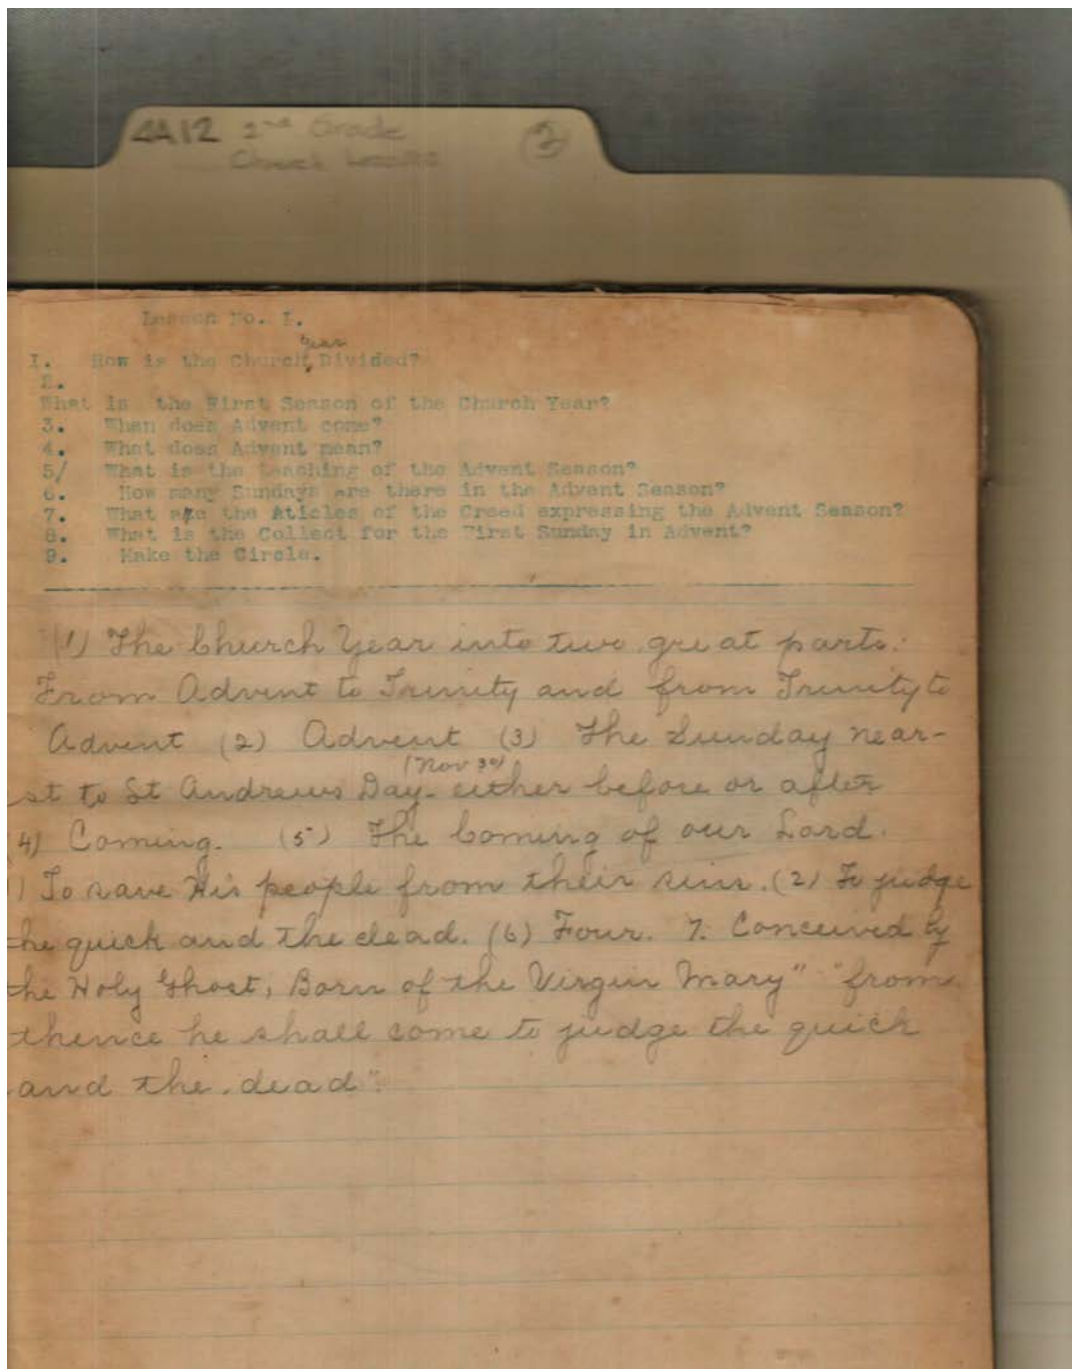 4A12 2nd Grade
Church
2
Lesson No. I.
year
I. How is the Church, Divided?
2.
What is the First Season of the Church Year?
3. When does Advent come?
4. What does Advent mean?
5/ What is the teaching of the Advent Season?
6. How many Sundays are there in the Advent Season?
7. What are the Aticles of the Creed expressing the Advent Season?
8. What is the Collect for the First Sunday in Advent?
9. Make the Circle.
(1) The Church Year into two great parts.
From Advent to Trinity and from Trinity to
Advent (2) Advent (3) The Sunday near-
(Nov 30)
st to St Andrews Day- either before or after
4) Coming. (5) The Coming of our Lord.
) To save His people from their sins. (2) To judge
he quick and the dead. (6) Four. 7. Conceived by
the Holy Ghost, Born of the Virgin Mary" "from
thence he shall come to judge the quick
and the dead".